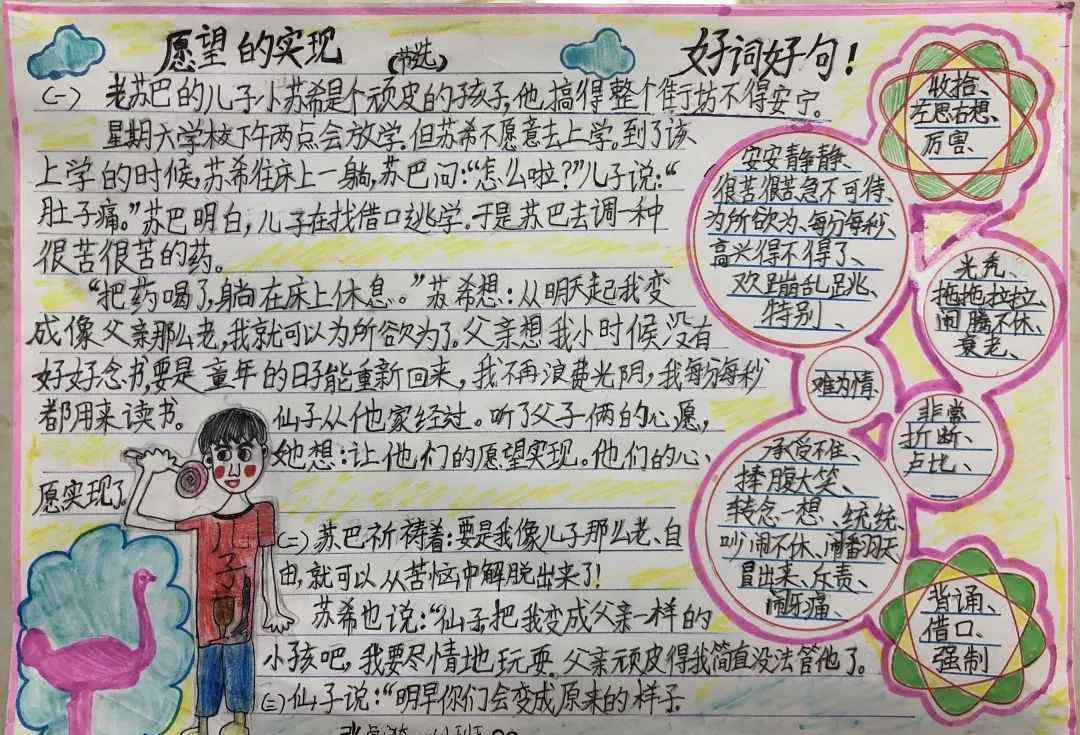 愿望的实现
(节选)
(一) 老苏巴的儿子小苏希是个顽皮的孩子,他搞得整个街坊不得安宁。
星期六学校下午两点会放学.但苏希不愿意去上学。到了该
上学的时候,苏希往床上一躺,苏巴问:“怎么啦?”儿子说:“
肚子痛。”苏巴明白,儿子在找借口逃学。于是苏巴去调一种
很苦很苦的药。
“把药喝了,躺在床上休息。”苏希想:从明天起我变
成像父亲那么老,我就可以为所欲为了。父亲想我小时候没有
好好念书,要是童年的日子能重新回来,我不再浪费光阴,我每分每秒
都用来读书。 仙子从他家经过。听了父子俩的心愿,
她想:让他们的愿望实现。他们的心、
愿实现了
(二) 苏巴祈祷着:要是我像儿子那么老、自
由,就可以从苦恼中解脱出来了!
苏希也说:“仙子,把我变成父亲一样的
小孩吧,我要尽情地玩耍。父亲顽皮得我简直没法管他了。
(三)仙子说:“明早你们会变成原来的样子.
儿
子
好词好句!
收拾、
左思右想、
厉害、
安安静静、
很苦很苦急不可待、
为所欲为、每分每秒、
高兴得不得了、
欢蹦乱跳、
特别、
光秃、
拖拖拉拉、
闹腾不休、
衰老、
难为情
非常
折断、
占比、
承受不住、
捧腹大笑、
转念一想、统统、
吵闹不休、闹翻天
冒出来、斥责、
闹牙痛、
背诵、
借口、
强制